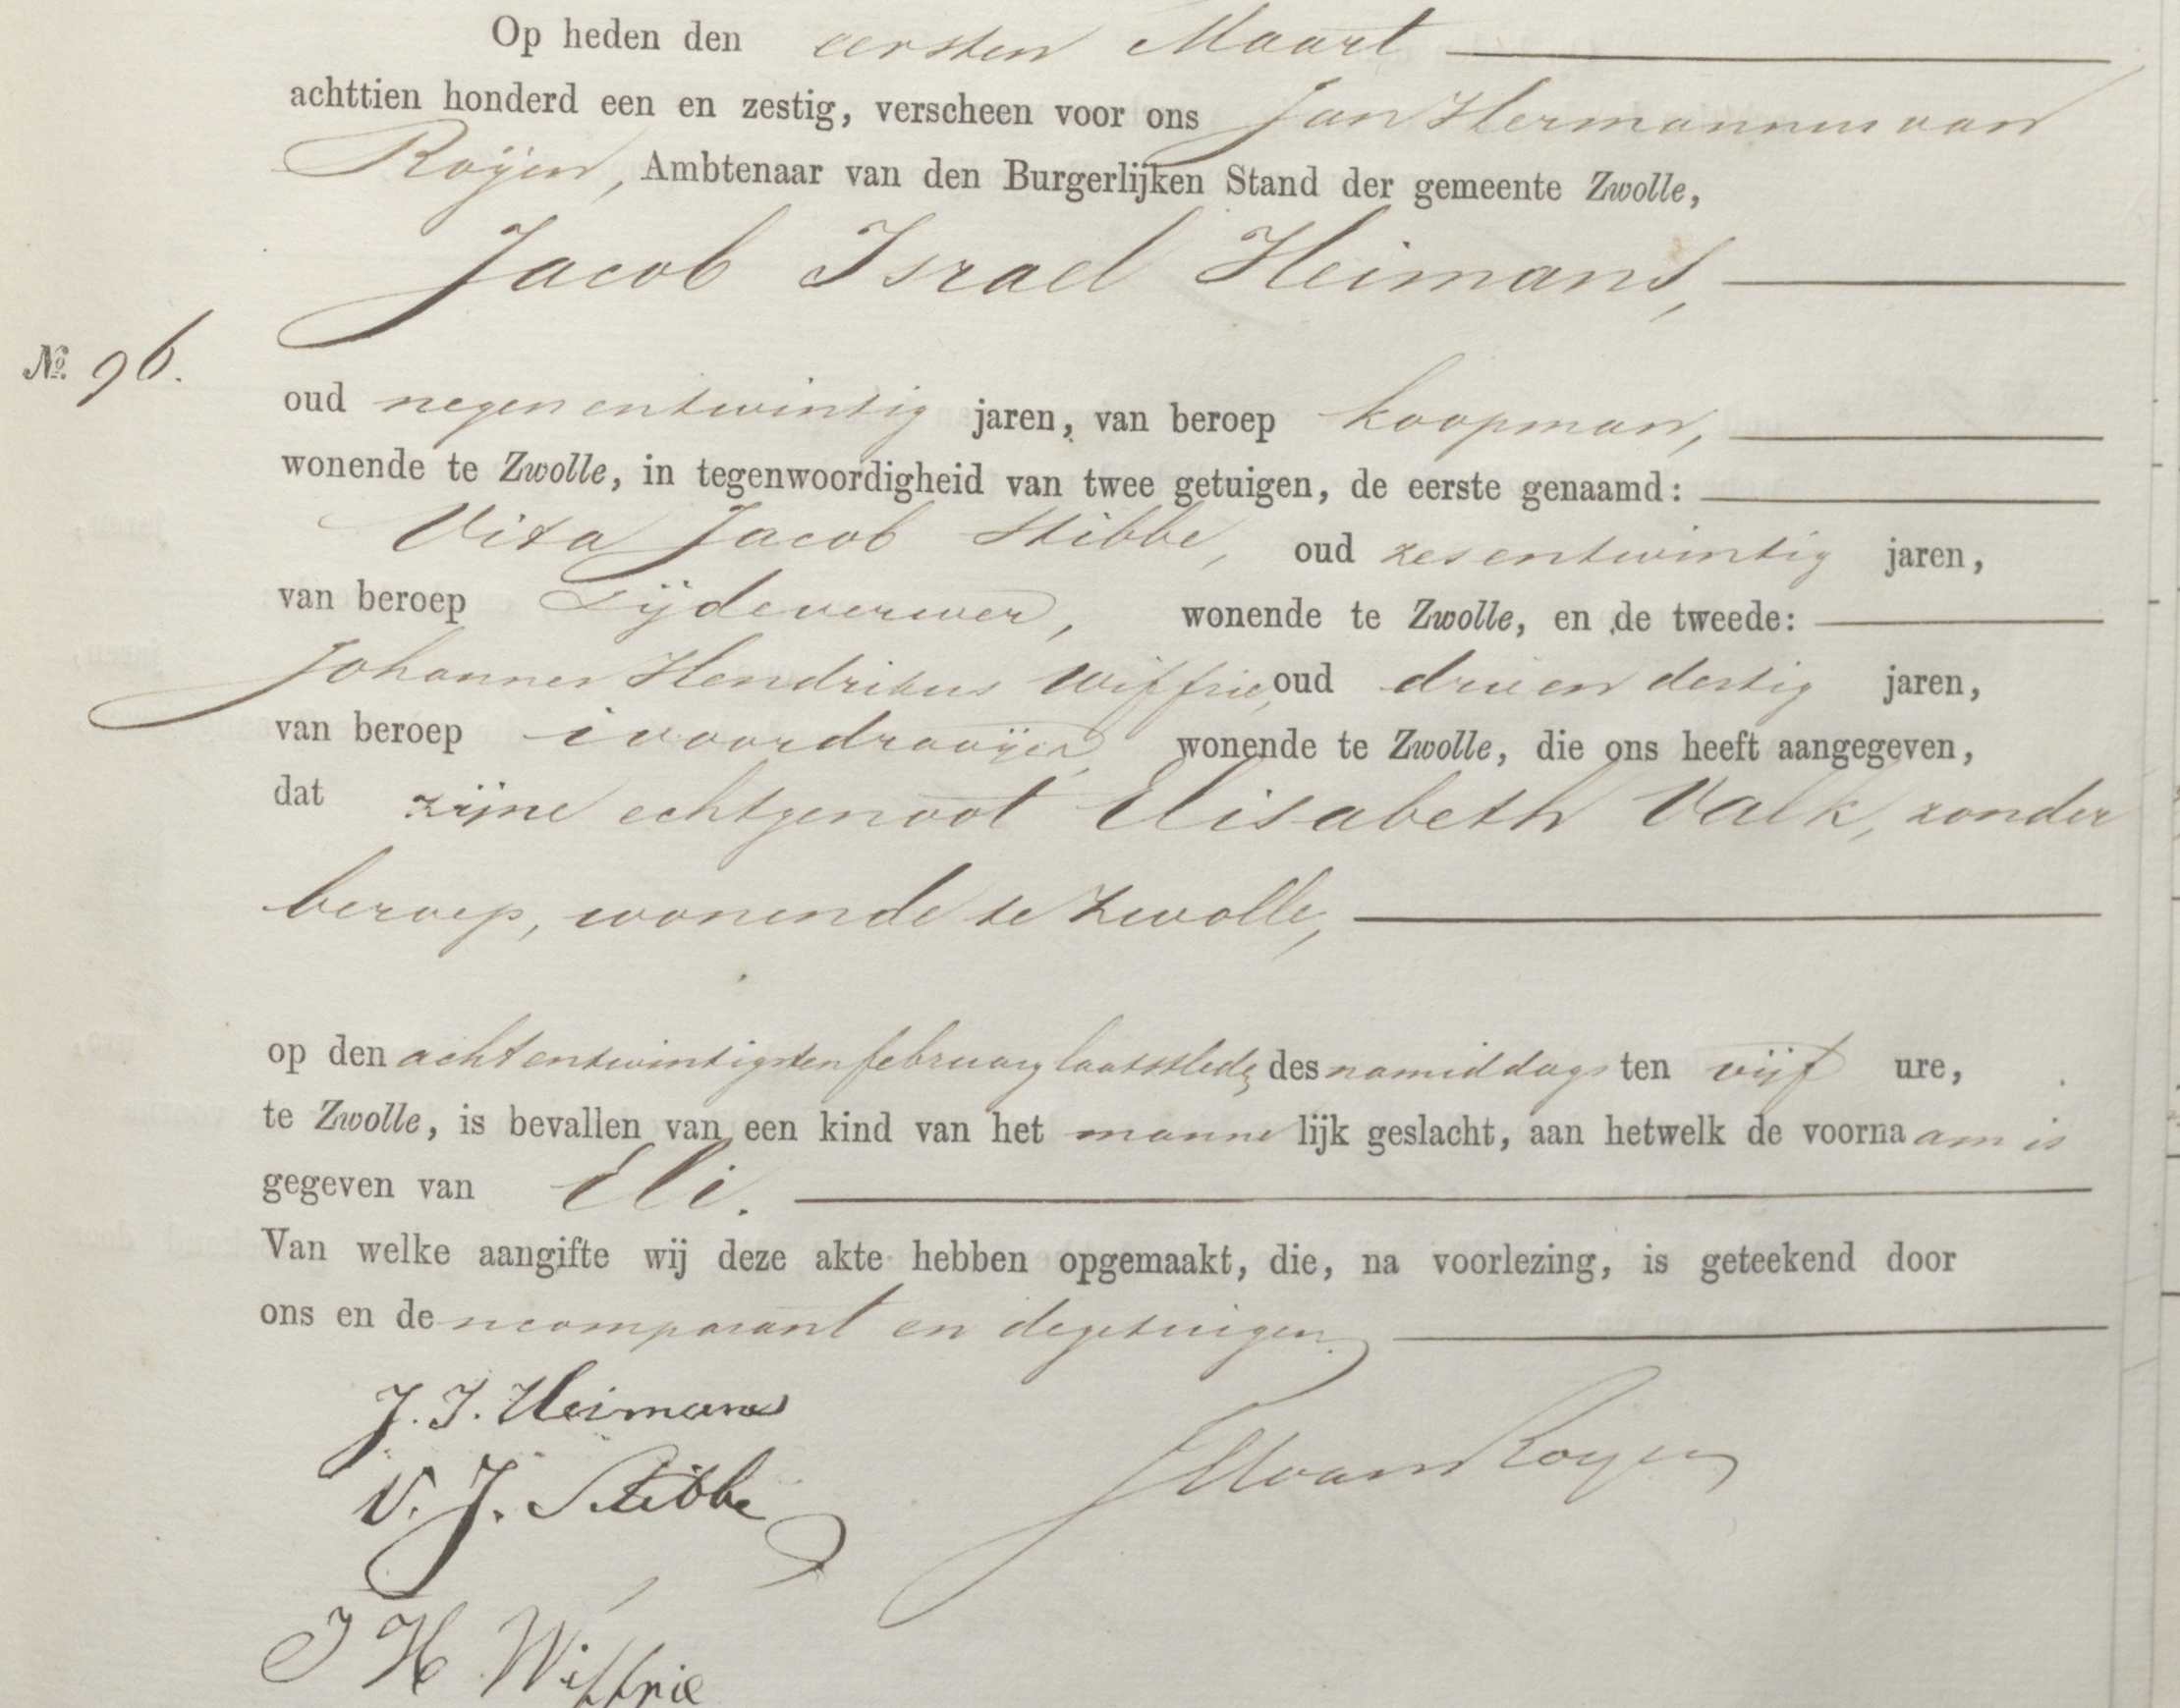 Op heden den eersten Maart
achttien honderd een en zestig, verscheen voor ons Jan Hermannus van
Roÿen, Ambtenaar van den Burgerlijken Stand der gemeente Zwolle,
Jacob Israel Heimans,
No. 96.
oud negenentwintig jaren, van beroep koopman,
wonende te Zwolle, in tegenwoordigheid van twee getuigen, de eerste genaamd:
Vita Jacob Stibbe, oud zesentwintig jaren,
van beroep Zÿdeverwer, wonende te Zwolle, en de tweede:
Johannes Hendrikus Wiffrie, oud drieendertig jaren,
van beroep ivoordraaÿer, wonende te Zwolle, die ons heeft aangegeven,
dat zÿne echtgenoot Elisabeth Valk, zonder
beroep, wonende te Zwolle,
op den achtentwintigsten february laatstlede, des namiddags ten vÿf ure,
te Zwolle, is bevallen van een kind van het mannelijk geslacht, aan hetwelk de voornaam is
gegeven van Eli.
Van welke aangifte wij deze akte hebben opgemaakt, die, na voorlezing, is geteekend door
ons en den comparant en de getuigen.
J. I. Heimans
V. J. Stibbe
JHvanRoyen
J H Wiffrie